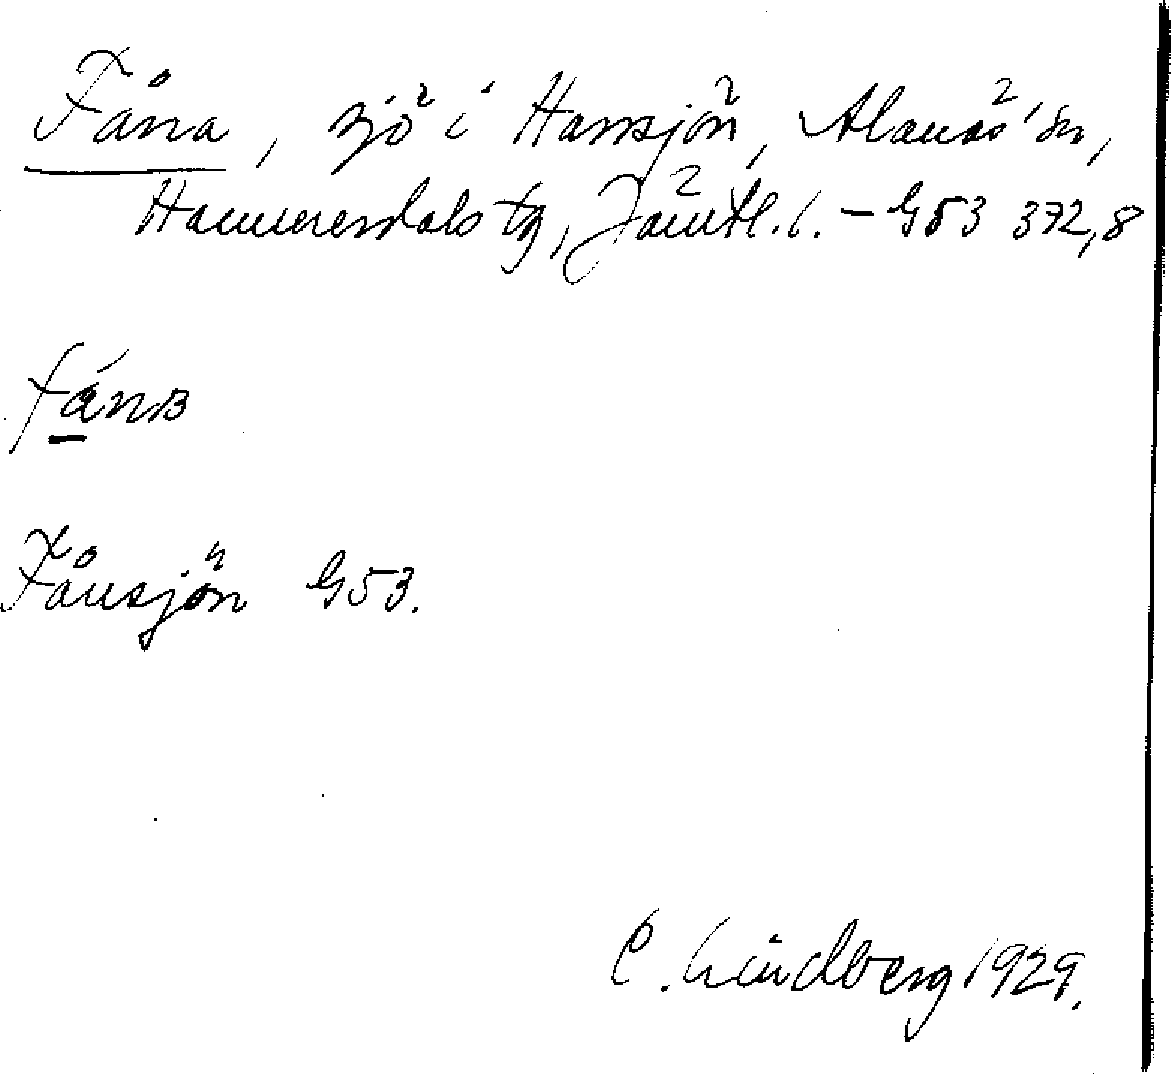 Fåna, sjö i Hansjön, Alanäs sn,
Hammerdals tg, Jämtl. l. – G53 372,8
fánɞ
Fånsjön G53.
C. Lindberg 1929.